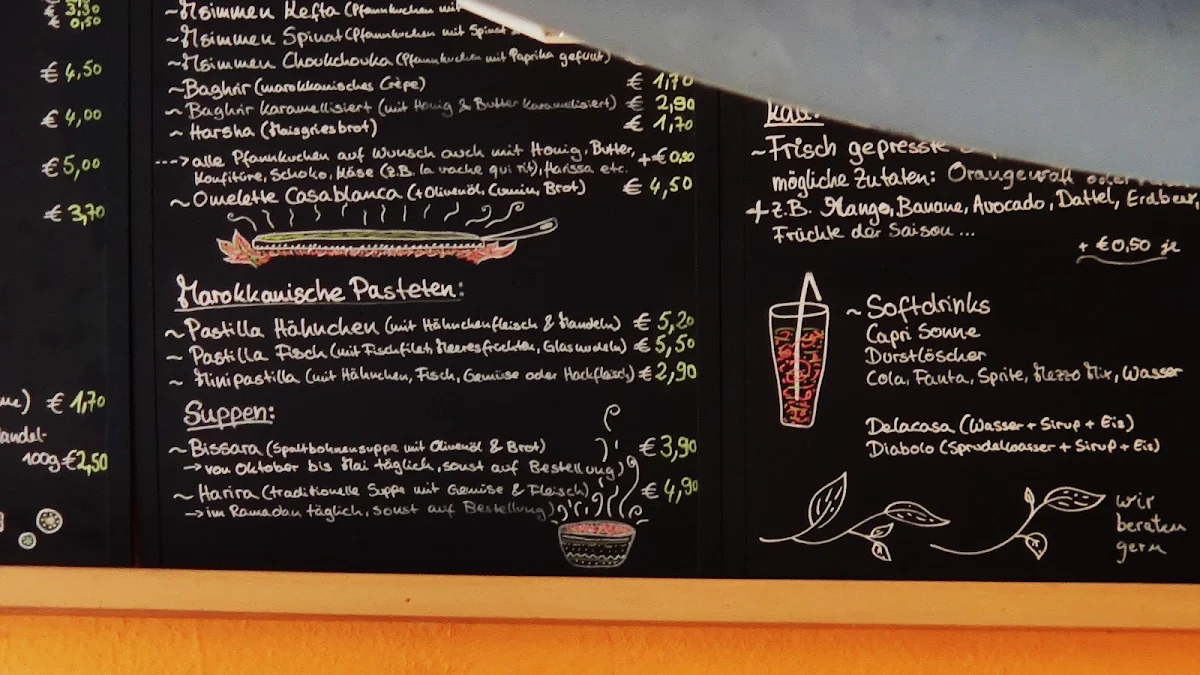 € 3,30
€ 0,50
€ 4,50
€ 4,00
€ 5,00
€ 3,70
€ 1,70
100g €2,50
~Msimmen Kefta (Pfannkuchen mit
~Msimmen Spinat (Pfannkuchen mit Spinat
~Msimmen Choukchouka (Pfannkuchen mit Paprika gefüllt)
~Baghrir (marokkanisches Crêpe) € 1,70
~Baghrir karamellisiert (mit Honig & Butter karamellisiert) € 2,90
~Harsha (Maisgriesbrot) € 1,70
---> alle Pfannkuchen auf Wunsch auch mit Honig, Butter, +€ 0,90
Konfitüre, Schoko, Käse (z.B. la vache qui rit), Harissa etc.
~Omelette Casablanca (+Olivenöl, Cumin, Brot) € 4,50
Marokkanische Pasteten:
~Pastilla Hähnchen (mit Hähnchenfleisch & Mandeln) € 5,20
~Pastilla Fisch (mit Fischfilet, Meeresfrüchten, Glasnudeln) € 5,50
~Minipastilla (mit Hähnchen, Fisch, Gemüse oder Hackfleisch) € 2,90
Suppen:
~Bissara (Spaltbohnensuppe mit Olivenöl & Brot) € 3,90
→ von Oktober bis Mai täglich, sonst auf Bestellung)
~Harira (traditionelle Suppe mit Gemüse & Fleisch) € 4,90
→ im Ramadan täglich, sonst auf Bestellung)
kalt:
~Frisch gepresste
mögliche Zutaten: Orangensaft oder
+ z.B. Mango, Banane, Avocado, Dattel, Erdbeer,
Früchte der Saison ...
+ €0,50 je
~Softdrinks
Capri Sonne
Durstlöscher
Cola, Fanta, Sprite, Mezzo Mix, Wasser
Delacasa (Wasser + Sirup + Eis)
Diabolo (Sprudelwasser + Sirup + Eis)
wir
beraten
gern